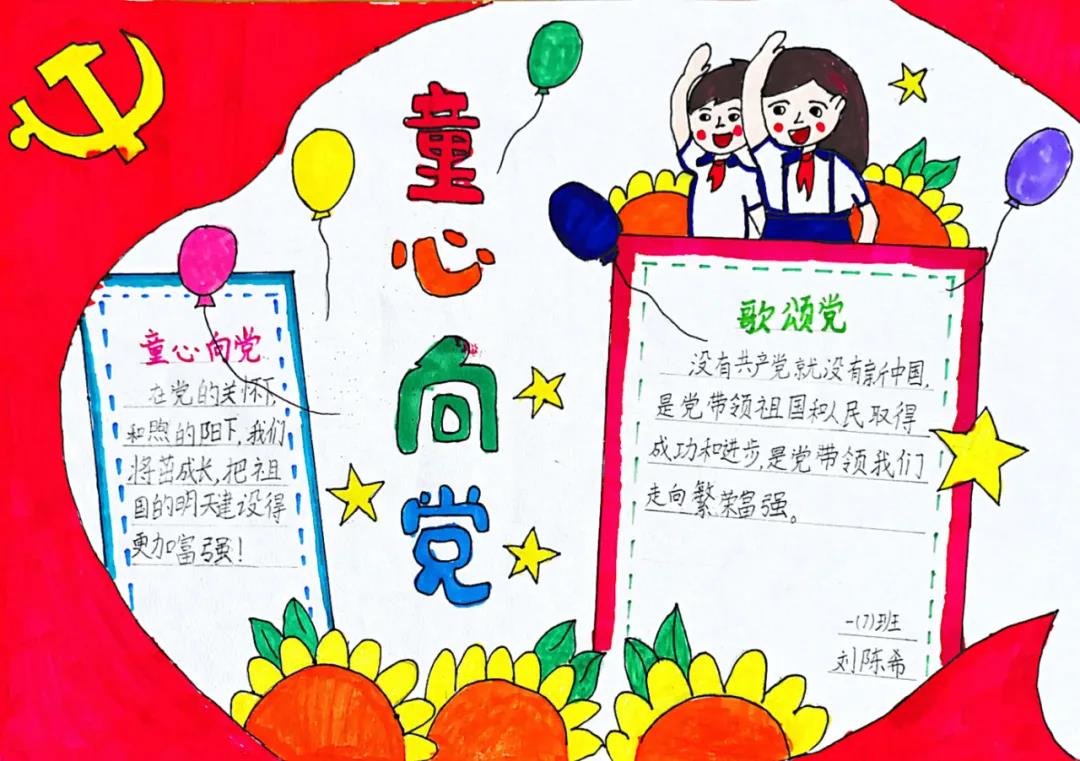 童心向党
童心向党
在党的关怀下,
和煦的阳下,我们
将茁成长,把祖
国的明天建设得
更加富强!
歌颂党
没有共产党就没有新中国,
是党带领祖国和人民取得
成功和进步,是党带领我们
走向繁荣富强。
一(7)班
刘陈希